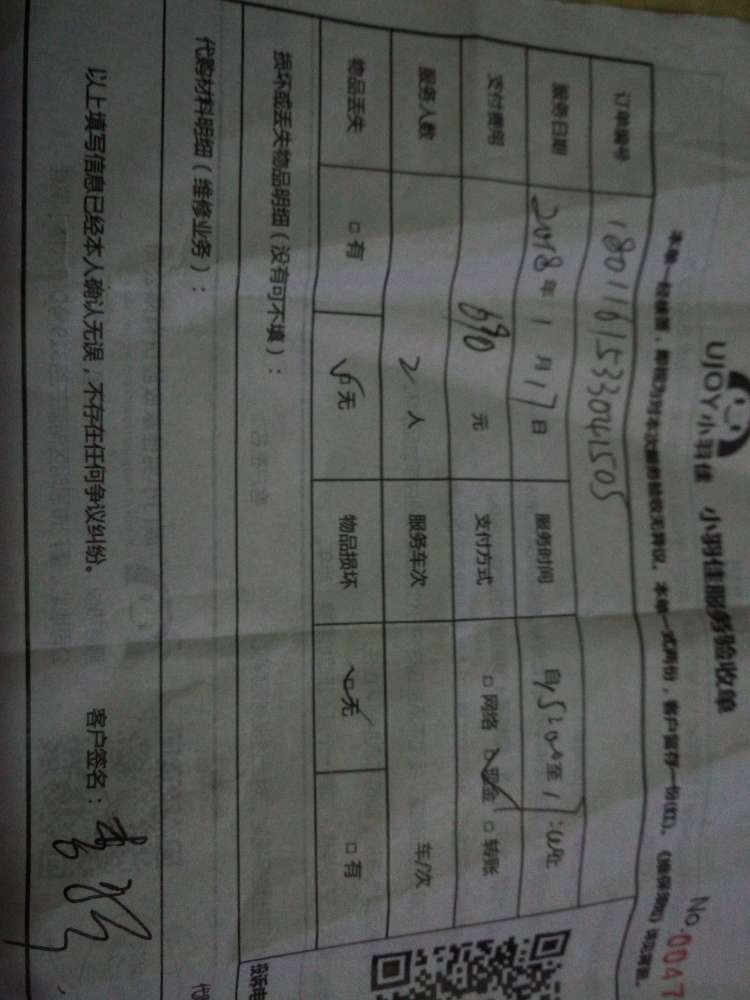 UJOY小羽佳 小羽佳服务验收单
No.0047
本单一经签署，即视为对本次服务验收无异议。本单一式两份，客户留存一份(红)。
订单编号 1801161533041505
服务日期 2018年1月17日 服务时间
支付费用 690元 支付方式 □网络 ☑现金 □转账
服务人数 2人 服务车次 车/次
物品丢失 □有 ☑无 物品损坏 ☑无 □有
损坏或丢失物品明细（没有可不填）：
代购材料明细（维修业务）：
以上填写信息已经本人确认无误，不存在任何争议纠纷。 客户签名：